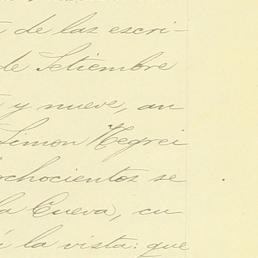 de las escri-
de Setiembre
y nueve, an
Simon Negrei
ochocientos se
la Cueva, cu
á la vista: que